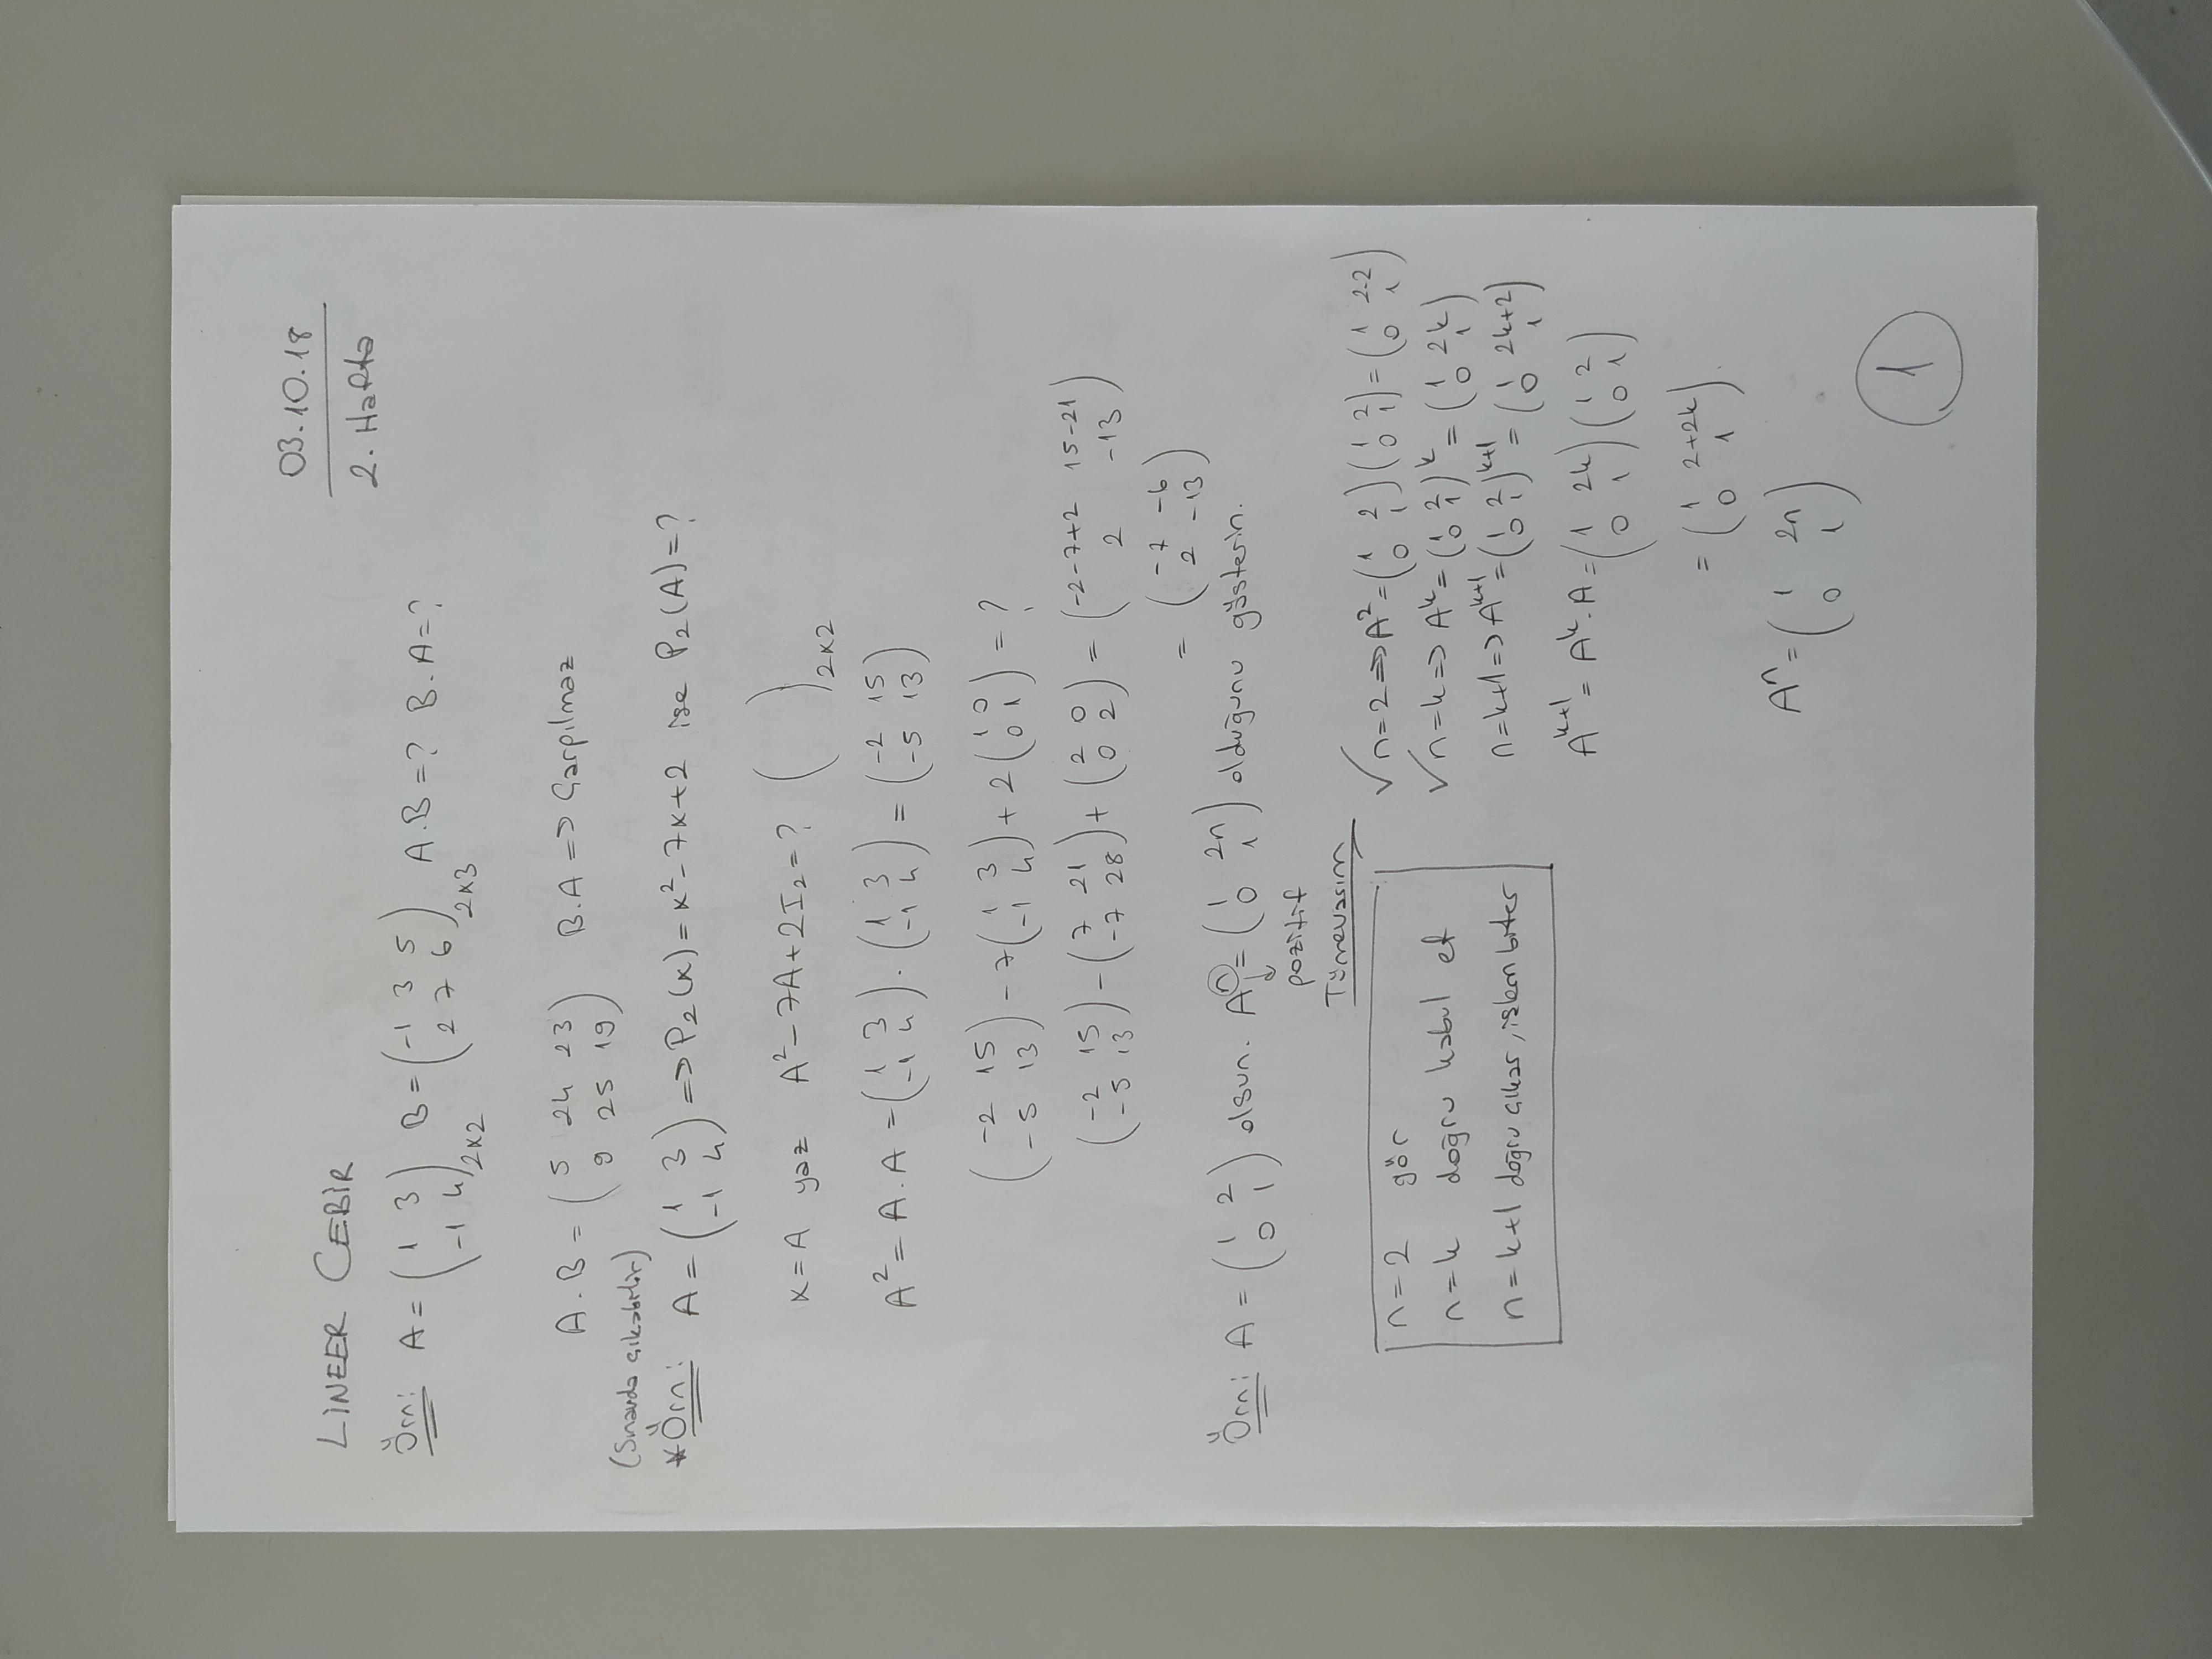 03.10.18
2. Hafta
LİNEER CEBİR
Örn: A = (1 3 / -1 4)2x2 B = (-1 3 5 / 2 7 6)2x3 A.B = ? B.A = ?
A.B = (5 24 23 / 9 25 19) B.A => Çarpılmaz
(Sınavda çıkabilir)
*Örn: A = (1 3 / -1 4) => P₂(x) = x² - 7x + 2 ise P₂(A) = ?
x = A yaz A² - 7A + 2I₂ = ? ( )2x2
A² = A.A = (1 3 / -1 4) . (1 3 / -1 4) = (-2 15 / -5 13)
(-2 15 / -5 13) - 7(1 3 / -1 4) + 2(1 0 / 0 1) = ?
(-2 15 / -5 13) - (7 21 / -7 28) + (2 0 / 0 2) = (-2-7+2 15-21 / 2 -13)
= (-7 -6 / 2 -13)
Örn: A = (1 2 / 0 1) olsun. Aⁿ = (1 2n / 0 1) olduğunu gösterin.
pozitif
Tümevarım
n = 2 gör
n = k doğru kabul et
n = k+1 doğru çıkar, işlem biter
✓ n = 2 => A² = (1 2 / 0 1) (1 2 / 0 1) = (1 2.2 / 0 1)
✓ n = k => Aᵏ = (1 2 / 0 1)ᵏ = (1 2k / 0 1)
n = k+1 => Aᵏ⁺¹ = (1 2 / 0 1)ᵏ⁺¹ = (1 2k+2 / 0 1)
Aᵏ⁺¹ = Aᵏ.A = (1 2k / 0 1) (1 2 / 0 1)
= (1 2+2k / 0 1)
Aⁿ = (1 2n / 0 1)
1